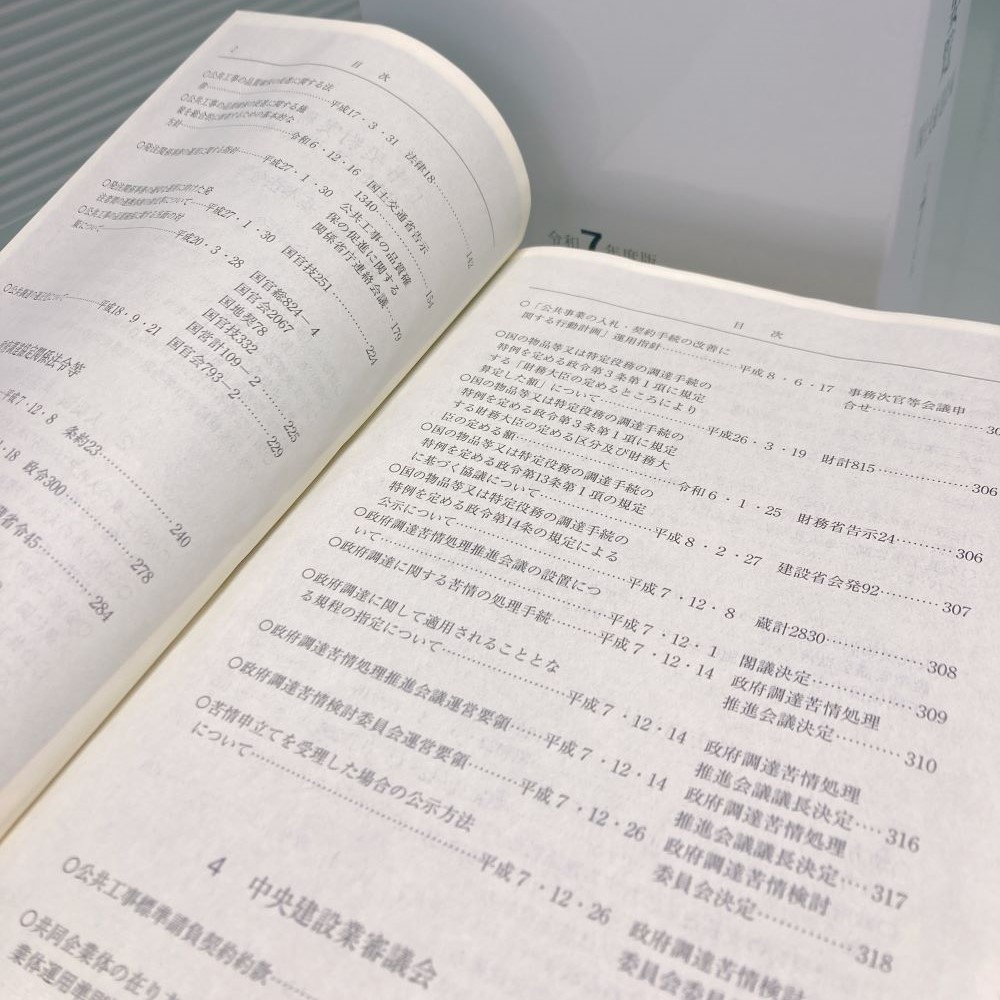 2 目 次
〇公共工事の品質確保の促進に関する法
律……平成17・3・31 法律18……142
〇公共工事の品質確保の促進に関する施
策を総合的に推進するための基本的な
方針……令和6・12・16 国土交通省告示
1340……154
〇発注関係事務の運用に関する指針……平成27・1・30 公共工事の品質確
保の促進に関する
関係省庁連絡会議…179
について……平成27・1・30 国官技251……224
〇公共工事の品質確保に関する当面の対
策について……平成20・3・28 国官総824-4
国官会2067
国地契78
国官技332
国営計109-2……225
平成18・9・21 国官会793-2……229
協定関係法令等
平成7・12・8 条約23……240
・18 政令300……278
省令45……284
令和7年度版
目 次
〇「公共事業の入札・契約手続の改善に
関する行動計画」運用指針……平成8・6・17 事務次官等会議申
合せ……
〇国の物品等又は特定役務の調達手続の
特例を定める政令第3条第1項に規定
する「財務大臣の定めるところにより
算定した額」について……平成26・3・19 財計815……306
〇国の物品等又は特定役務の調達手続の
特例を定める政令第3条第1項に規定
する財務大臣の定める区分及び財務大
臣の定める額……令和6・1・25 財務省告示24……306
〇国の物品等又は特定役務の調達手続の
特例を定める政令第13条第1項の規定
に基づく協議について……平成8・2・27 建設省会発92……307
〇国の物品等又は特定役務の調達手続の
特例を定める政令第14条の規定による
公示について……平成7・12・8 蔵計2830……308
〇政府調達苦情処理推進会議の設置につ
いて……平成7・12・1 閣議決定……309
〇政府調達に関する苦情の処理手続……平成7・12・14 政府調達苦情処理
推進会議決定……310
〇政府調達に関して適用されることとな
る規程の指定について……平成7・12・14 政府調達苦情処理
推進会議議長決定…316
〇政府調達苦情処理推進会議運営要領……平成7・12・14 政府調達苦情処理
推進会議議長決定…317
〇政府調達苦情検討委員会運営要領……平成7・12・26 政府調達苦情検討
委員会決定……318
〇苦情申立てを受理した場合の公示方法
について……平成7・12・26 政府調達苦情検討
委員会委員長
4 中央建設業審議会
〇公共工事標準請負契約約款……
〇共同企業体の在り方
業体運用準則